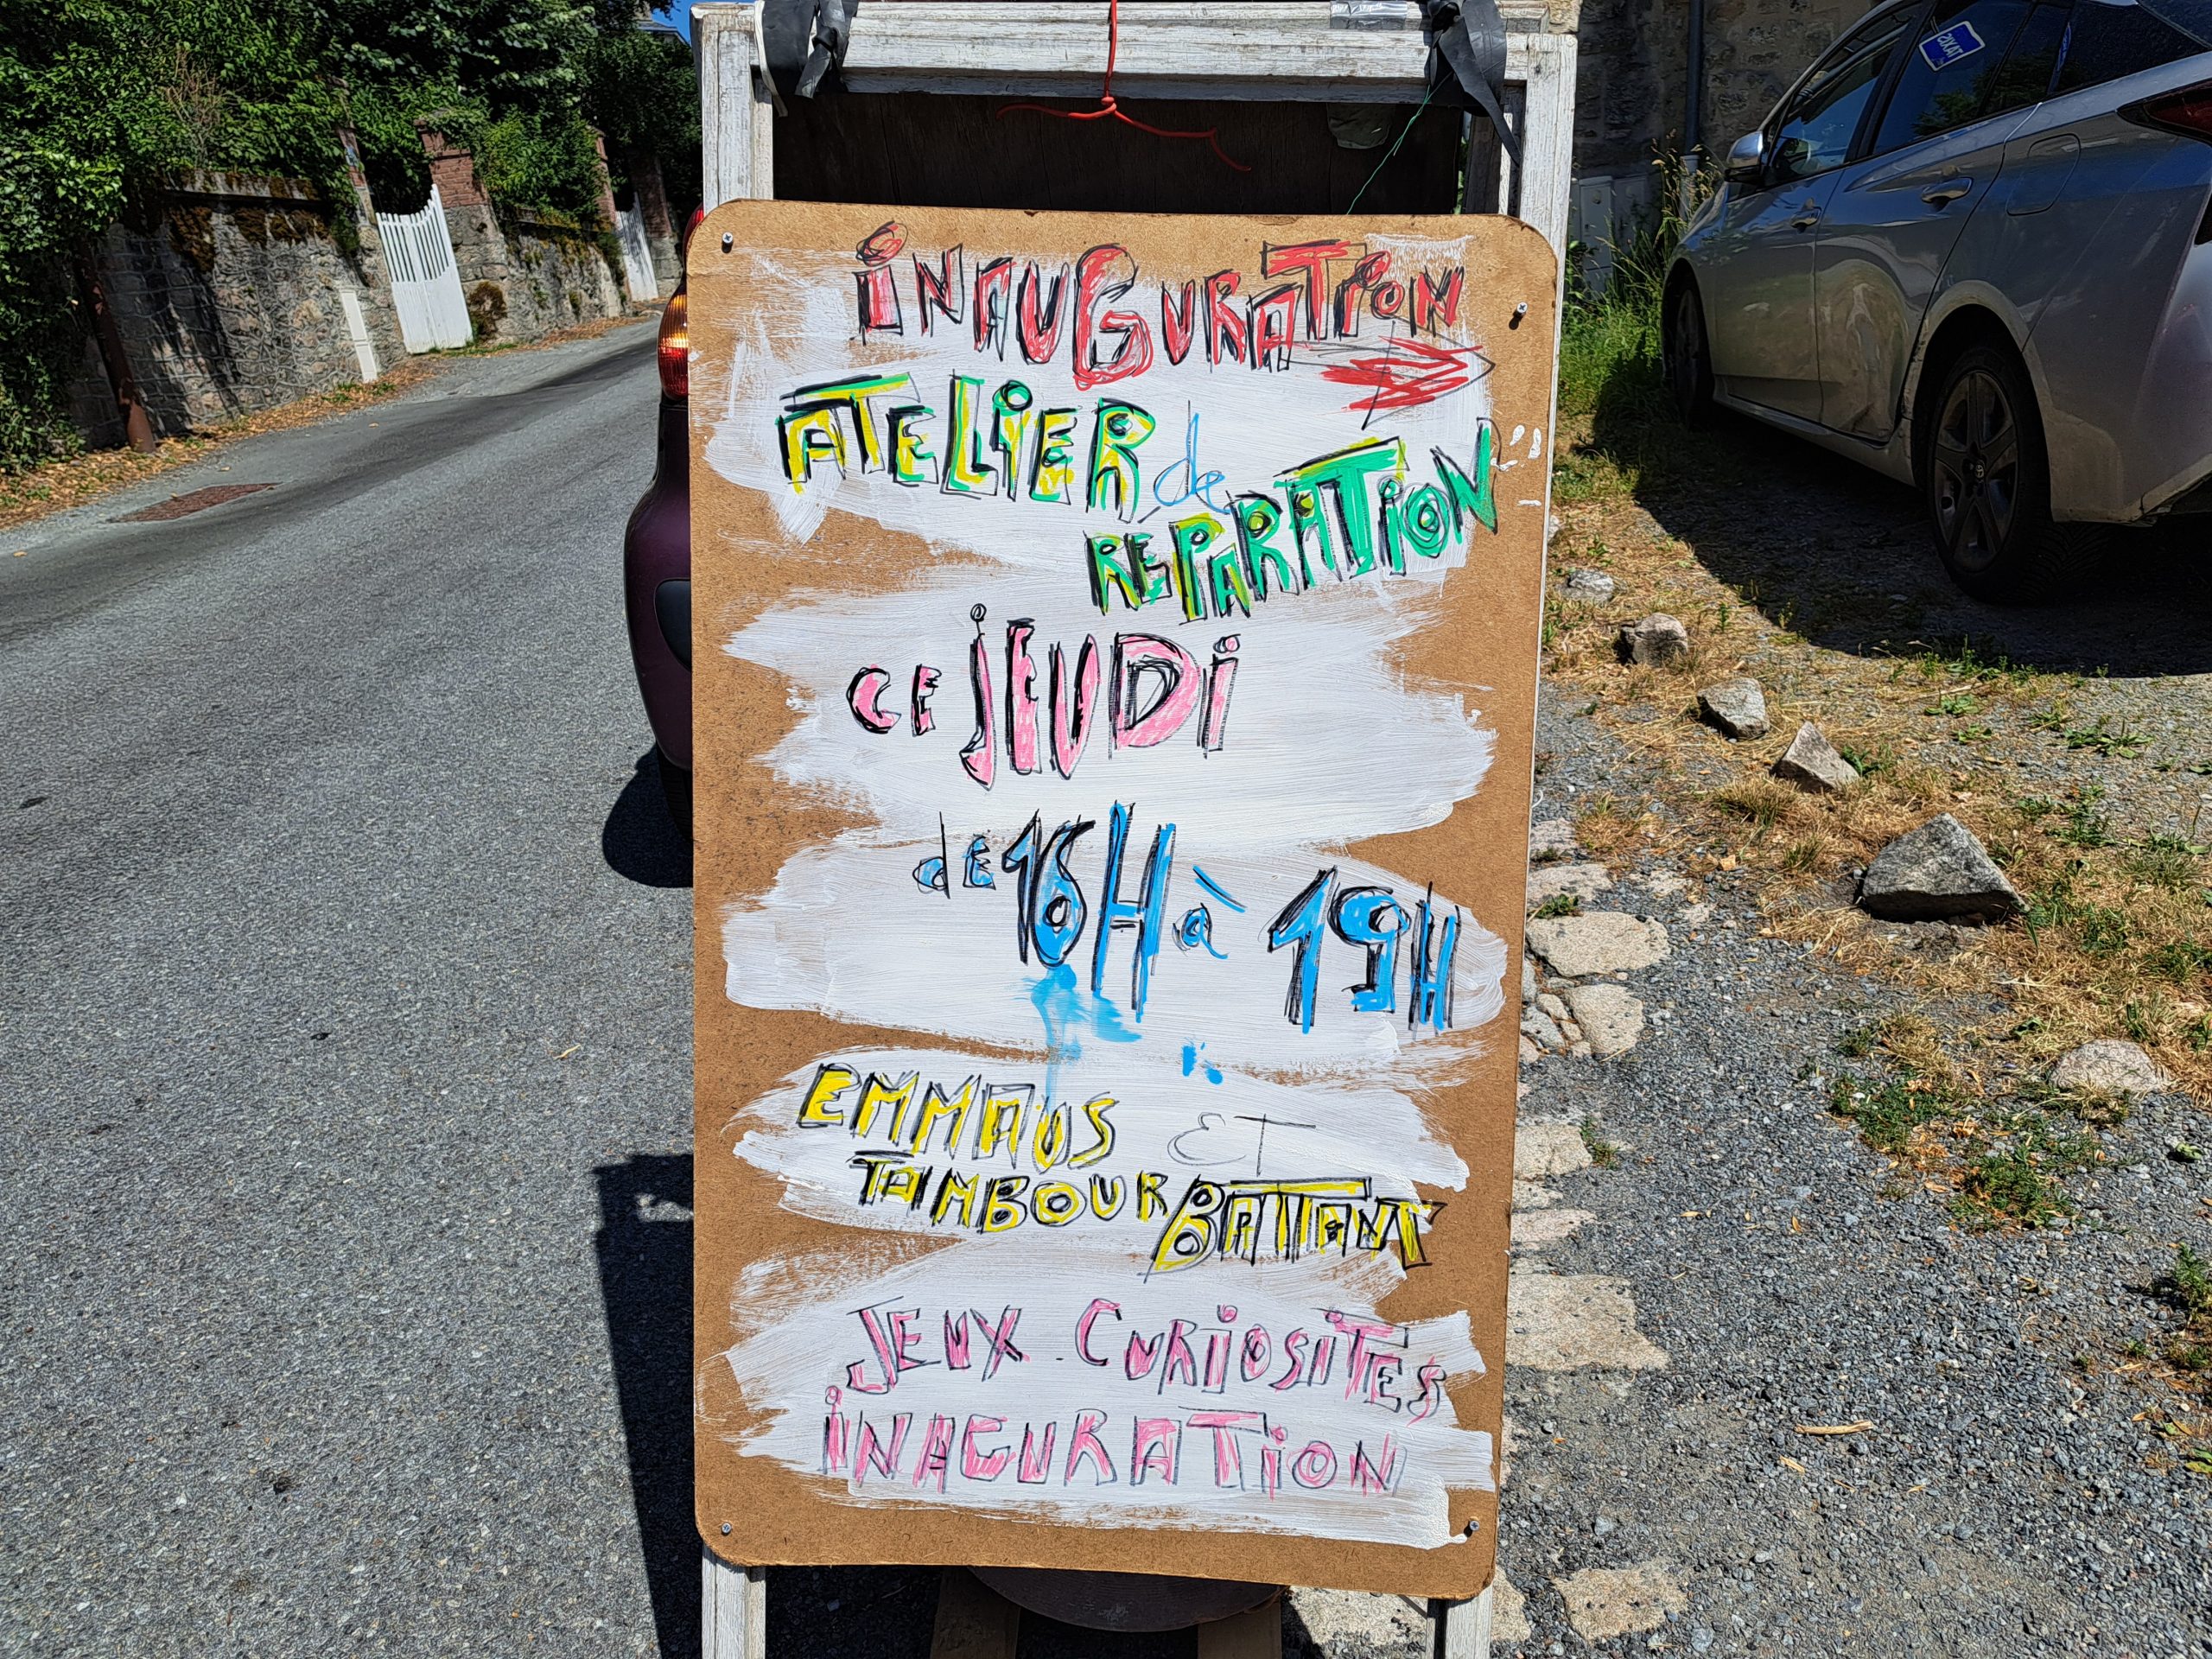 iNAUGURATiON
ATELiER de
REPARATiON
CE jEUDi
dE 16H à 19H
EMMAUS ET
TAMBOUR BATTANT
JEUX - CURiOSiTES
iNAGURATiON